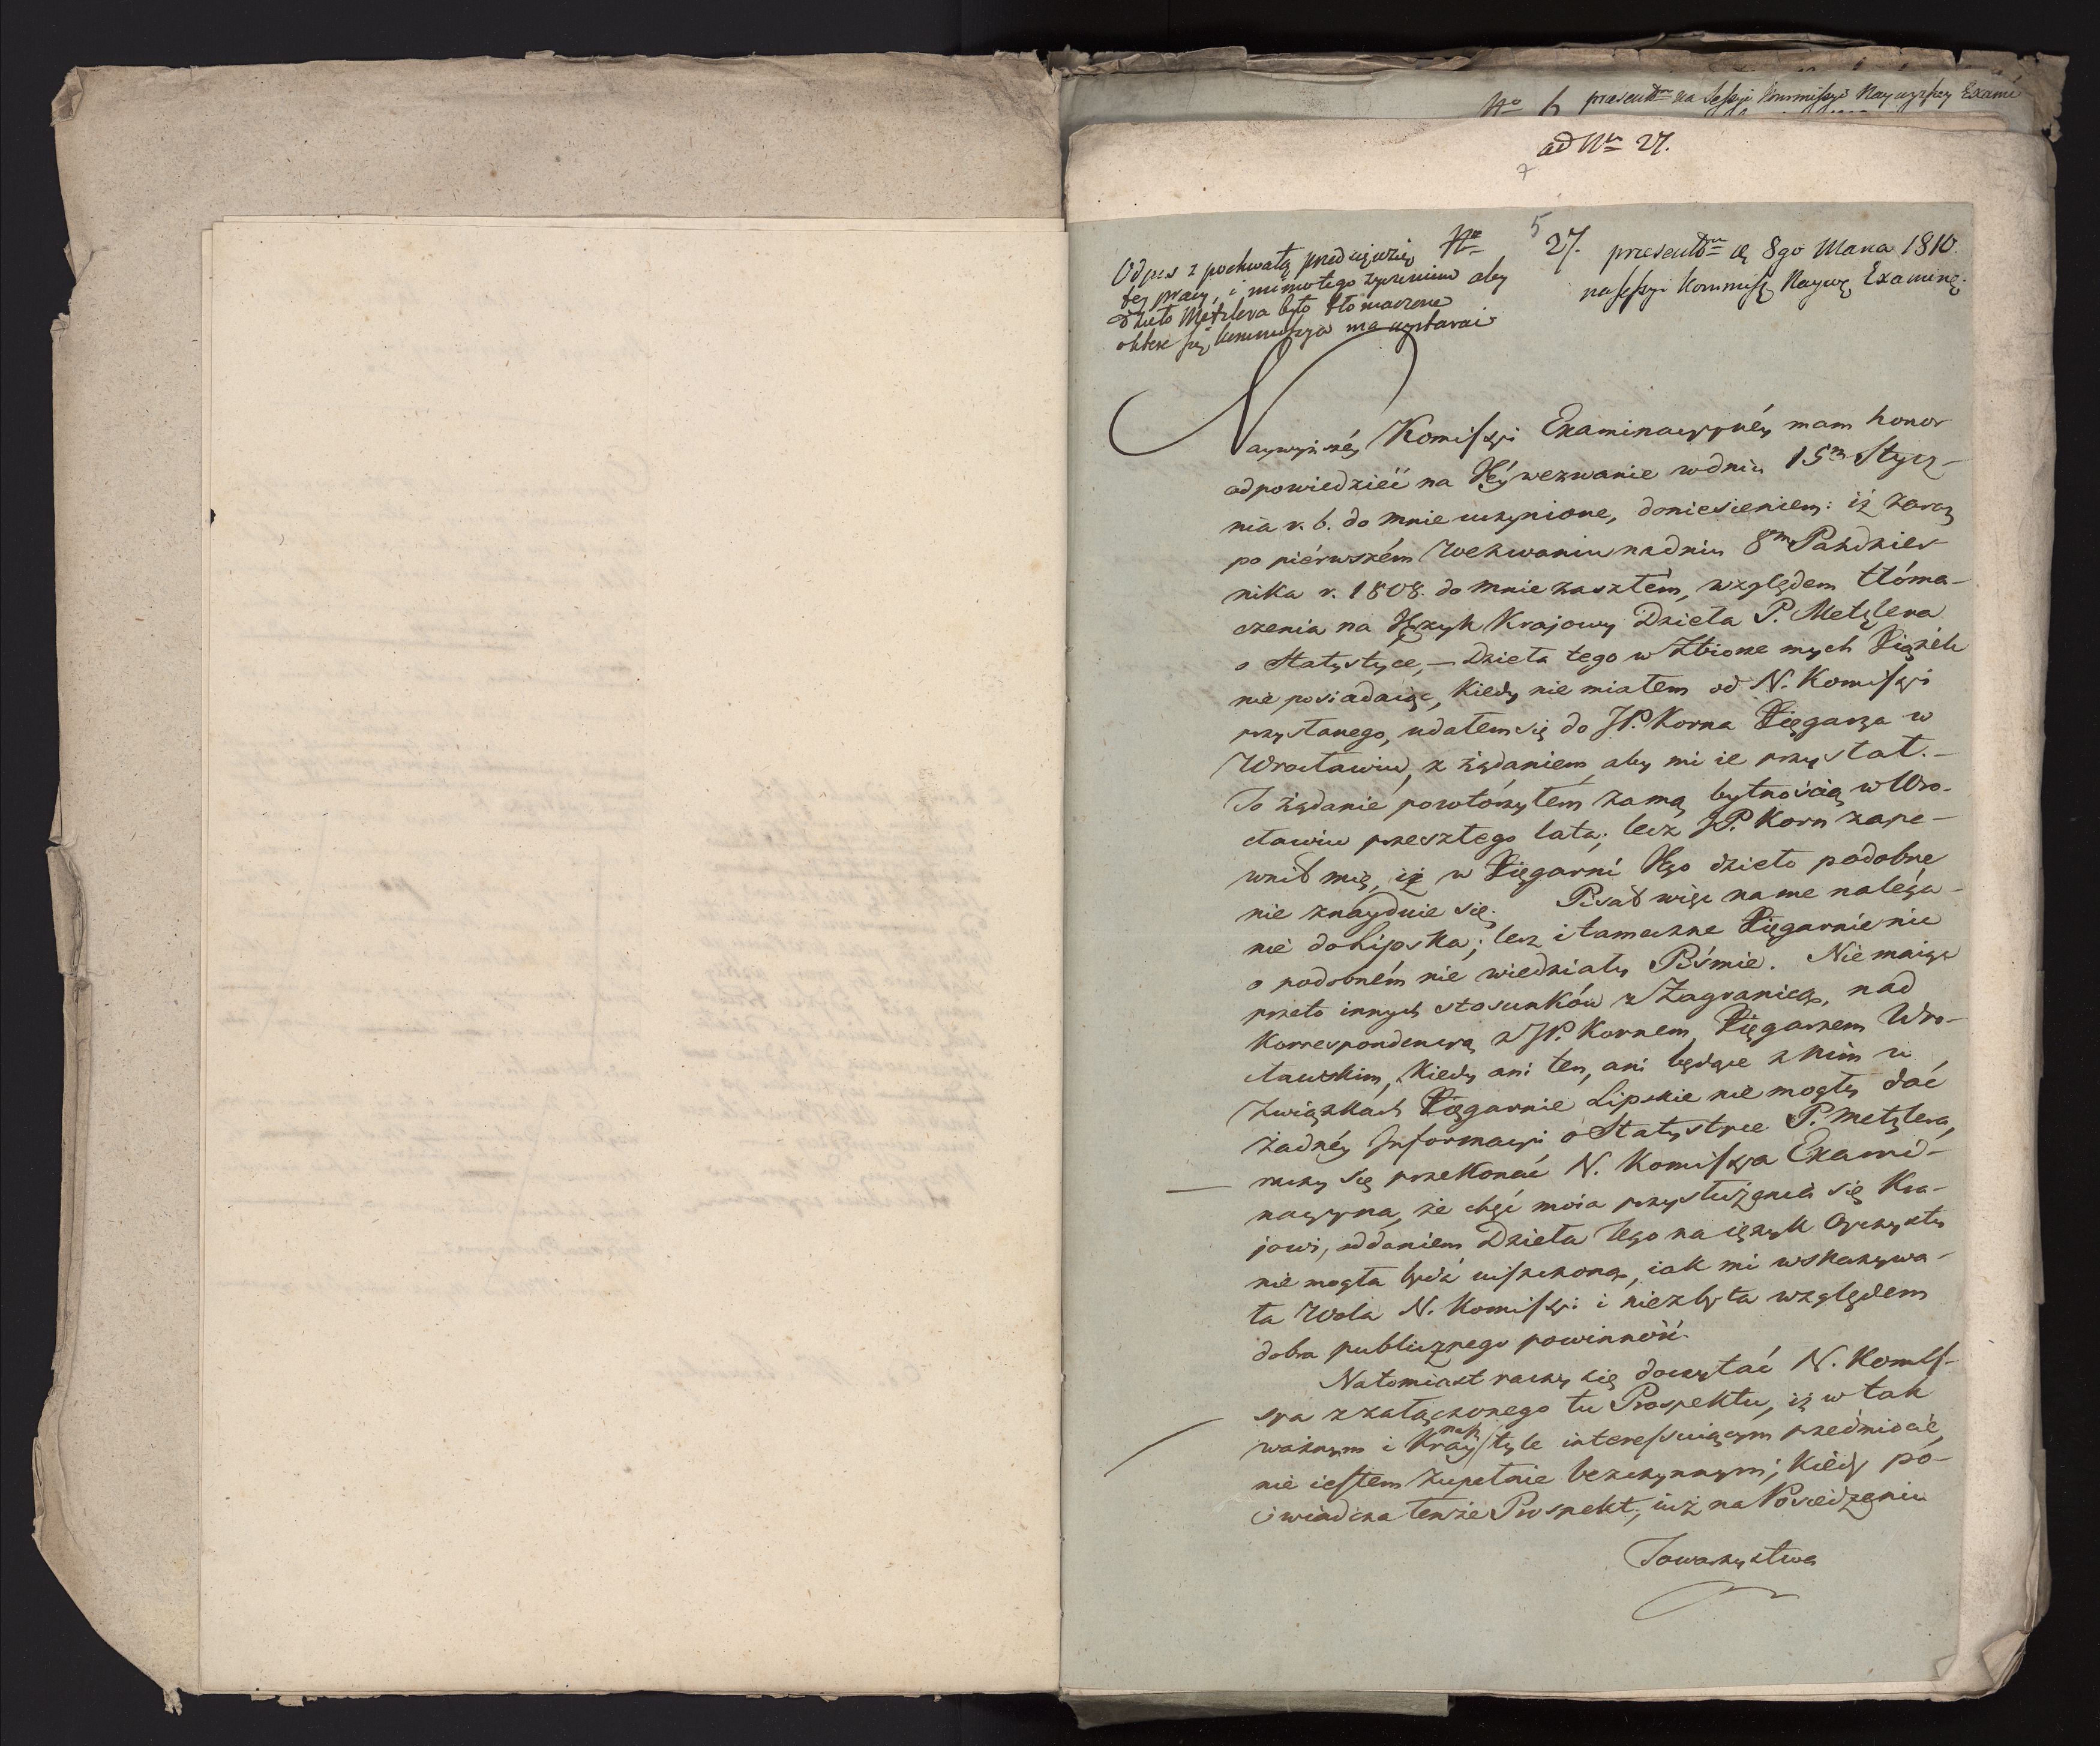 No 6 praesentm na Sessyi Kommissyi Naywyższey Exami
ad Nr 27.
7
5
No 27. presentm d. 8go Marca 1810.
na sessyi Kommiss. Naywę Examinę.
Odpis z pochwałą przedsięwzię
tey pracy, i mimo tego życzeniem aby
dzieło Metzlera było tłómaczone
o które się kommissya ma wystarać
Naywyżnéy Komissyi Examinacyynéy mam honor
odpowiedzieć na Jéy wezwanie w dniu 15m Stycz-
nia r. b. do mnie uczynione, doniesieniem: iż zaraz
po piérwszém Wezwaniu na dniu 8m Paździer
nika r. 1808. do mnie zaszłém, względem tłóma-
czenia na Język Krajowy Dzieła P. Metzlera
o Statystyce, — Dzieła tego w Zbiorze mych Xiążek
nie posiadaiąc, kiedy nie miałem od N. Komissyi
przysłanego, udałem się do JP. Korna Xięgarza w
Wrocławiu, z żądaniem, aby mi ie przysłał. —
To żądanie powtórzyłem za mą bytnością w Wro-
cławiu przeszłego lata; lecz JP. Korn zape-
wnił mię, iż w Xięgarni Jego dzieło podobne
nie znayduie się. Pisał więc na me nalega-
nie do Lipska; lecz i tameczne Xięgarnie nic
o podobném nie wiedziały Piśmie. Nie maiąc
przeto innych stosunków z Zagranicą, nad
Korrespondencyą z JP. Kornem Xięgarzem Wro-
cławskim, kiedy ani ten, ani będące z nim w
Związkach Xięgarnie Lipskie nie mogły dać
żadnéy Informacyi o Statystyce P. Metzlera,
raczy się przekonać N. Komissya Exami-
nacyyna, że chęć moia przysłużenia się Kra-
jowi, oddaniem Dzieła tego na ięzyk Oyczysty
nie mogła bydź uiszczoną, iak mi wskazywa-
ła Wola N. Komissyi i niezbyta względem
dobra publicznego powinność.
Natomiast raczy się doczytać N. Komis-
sya z załączonego tu Prospektu, iż w tak
ważnym i Kray nasz tyle interessuiącym przedmiocie,
nie iestem zupełnie bezczynnym; kiedy po-
świadcza tenże Prospekt, iuż na Posiedzeniu
Towarzystwa